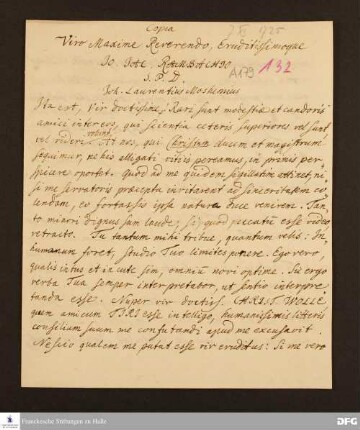 Copia
Viro Maxime Reverendo, Eruditissimoque
Jo. Jac. RAMBACHIO
S. P. D.
A173
A 92
Joh. Laurentius Moshemius
Ita est, Vir doctissime, Rari sunt modestiae et candoris
amici inter eos, qui scientia ceteris superiores vel sunt,
vel videri volunt. At nos, qui Christum ducem et magistrum
sequimur, ne his alligati vitiis pereamus, in primis per-
spicere oportet. Quod ad me quidem sigillatim attinet, ni-
si me servatoris praecepta invitarent ad sinceritatem co-
lendam, eo fortassis ipsa natura duce venirem. Tan-
to minori dignus sum laude, si, quod peccatum esse video
retracto. Tu tantum mihi tribue, quantum velis: In-
humanum foret, studio Tuo limites ponere. Ego vero
qualis intus et in cute sim, omnium novi optime. Sic ergo
verba Tua semper interpretabor, ut sentio interpre-
tanda esse. Nuper vir doctiss. CHRIST. WOLLE
quem amicum TIBI esse intelligo, humanissimis litteris
consilium suum me confutandi apud me excusavit.
Nescio qualem me putat esse vir eruditus: Si me vero
Franckesche Stiftungen zu Halle
DFG